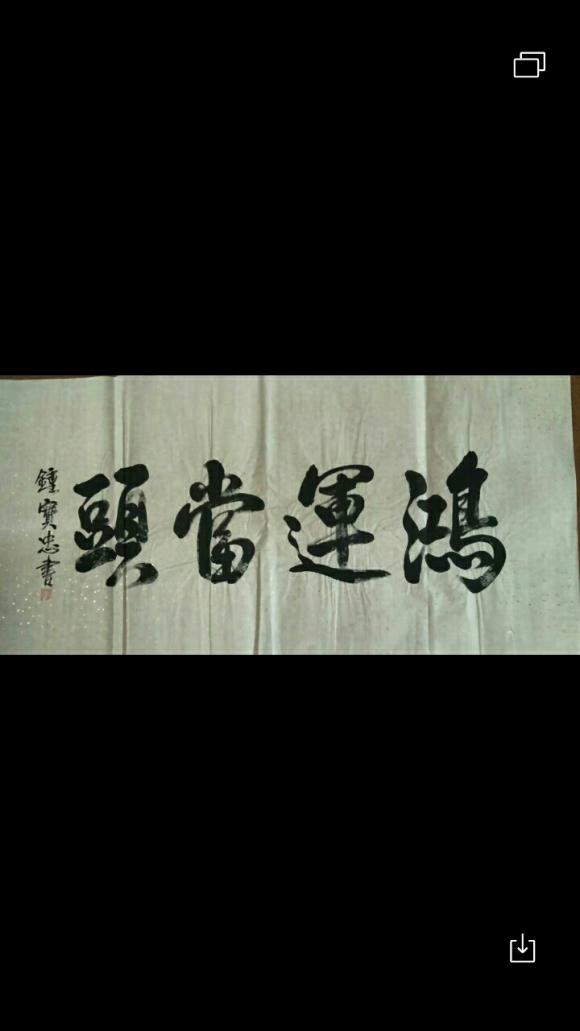 鴻運當頭
鍾寶忠書